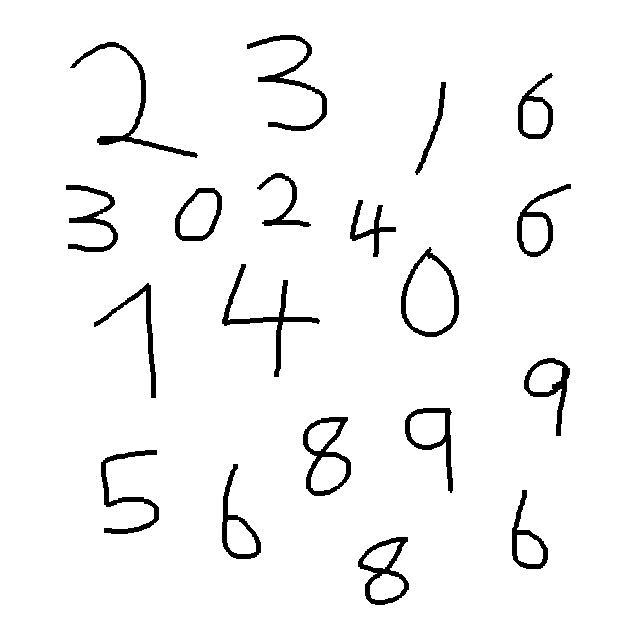 2 3 1 6
3 0 2 4 6
1 4 0
9
5 6 8 9
8 6